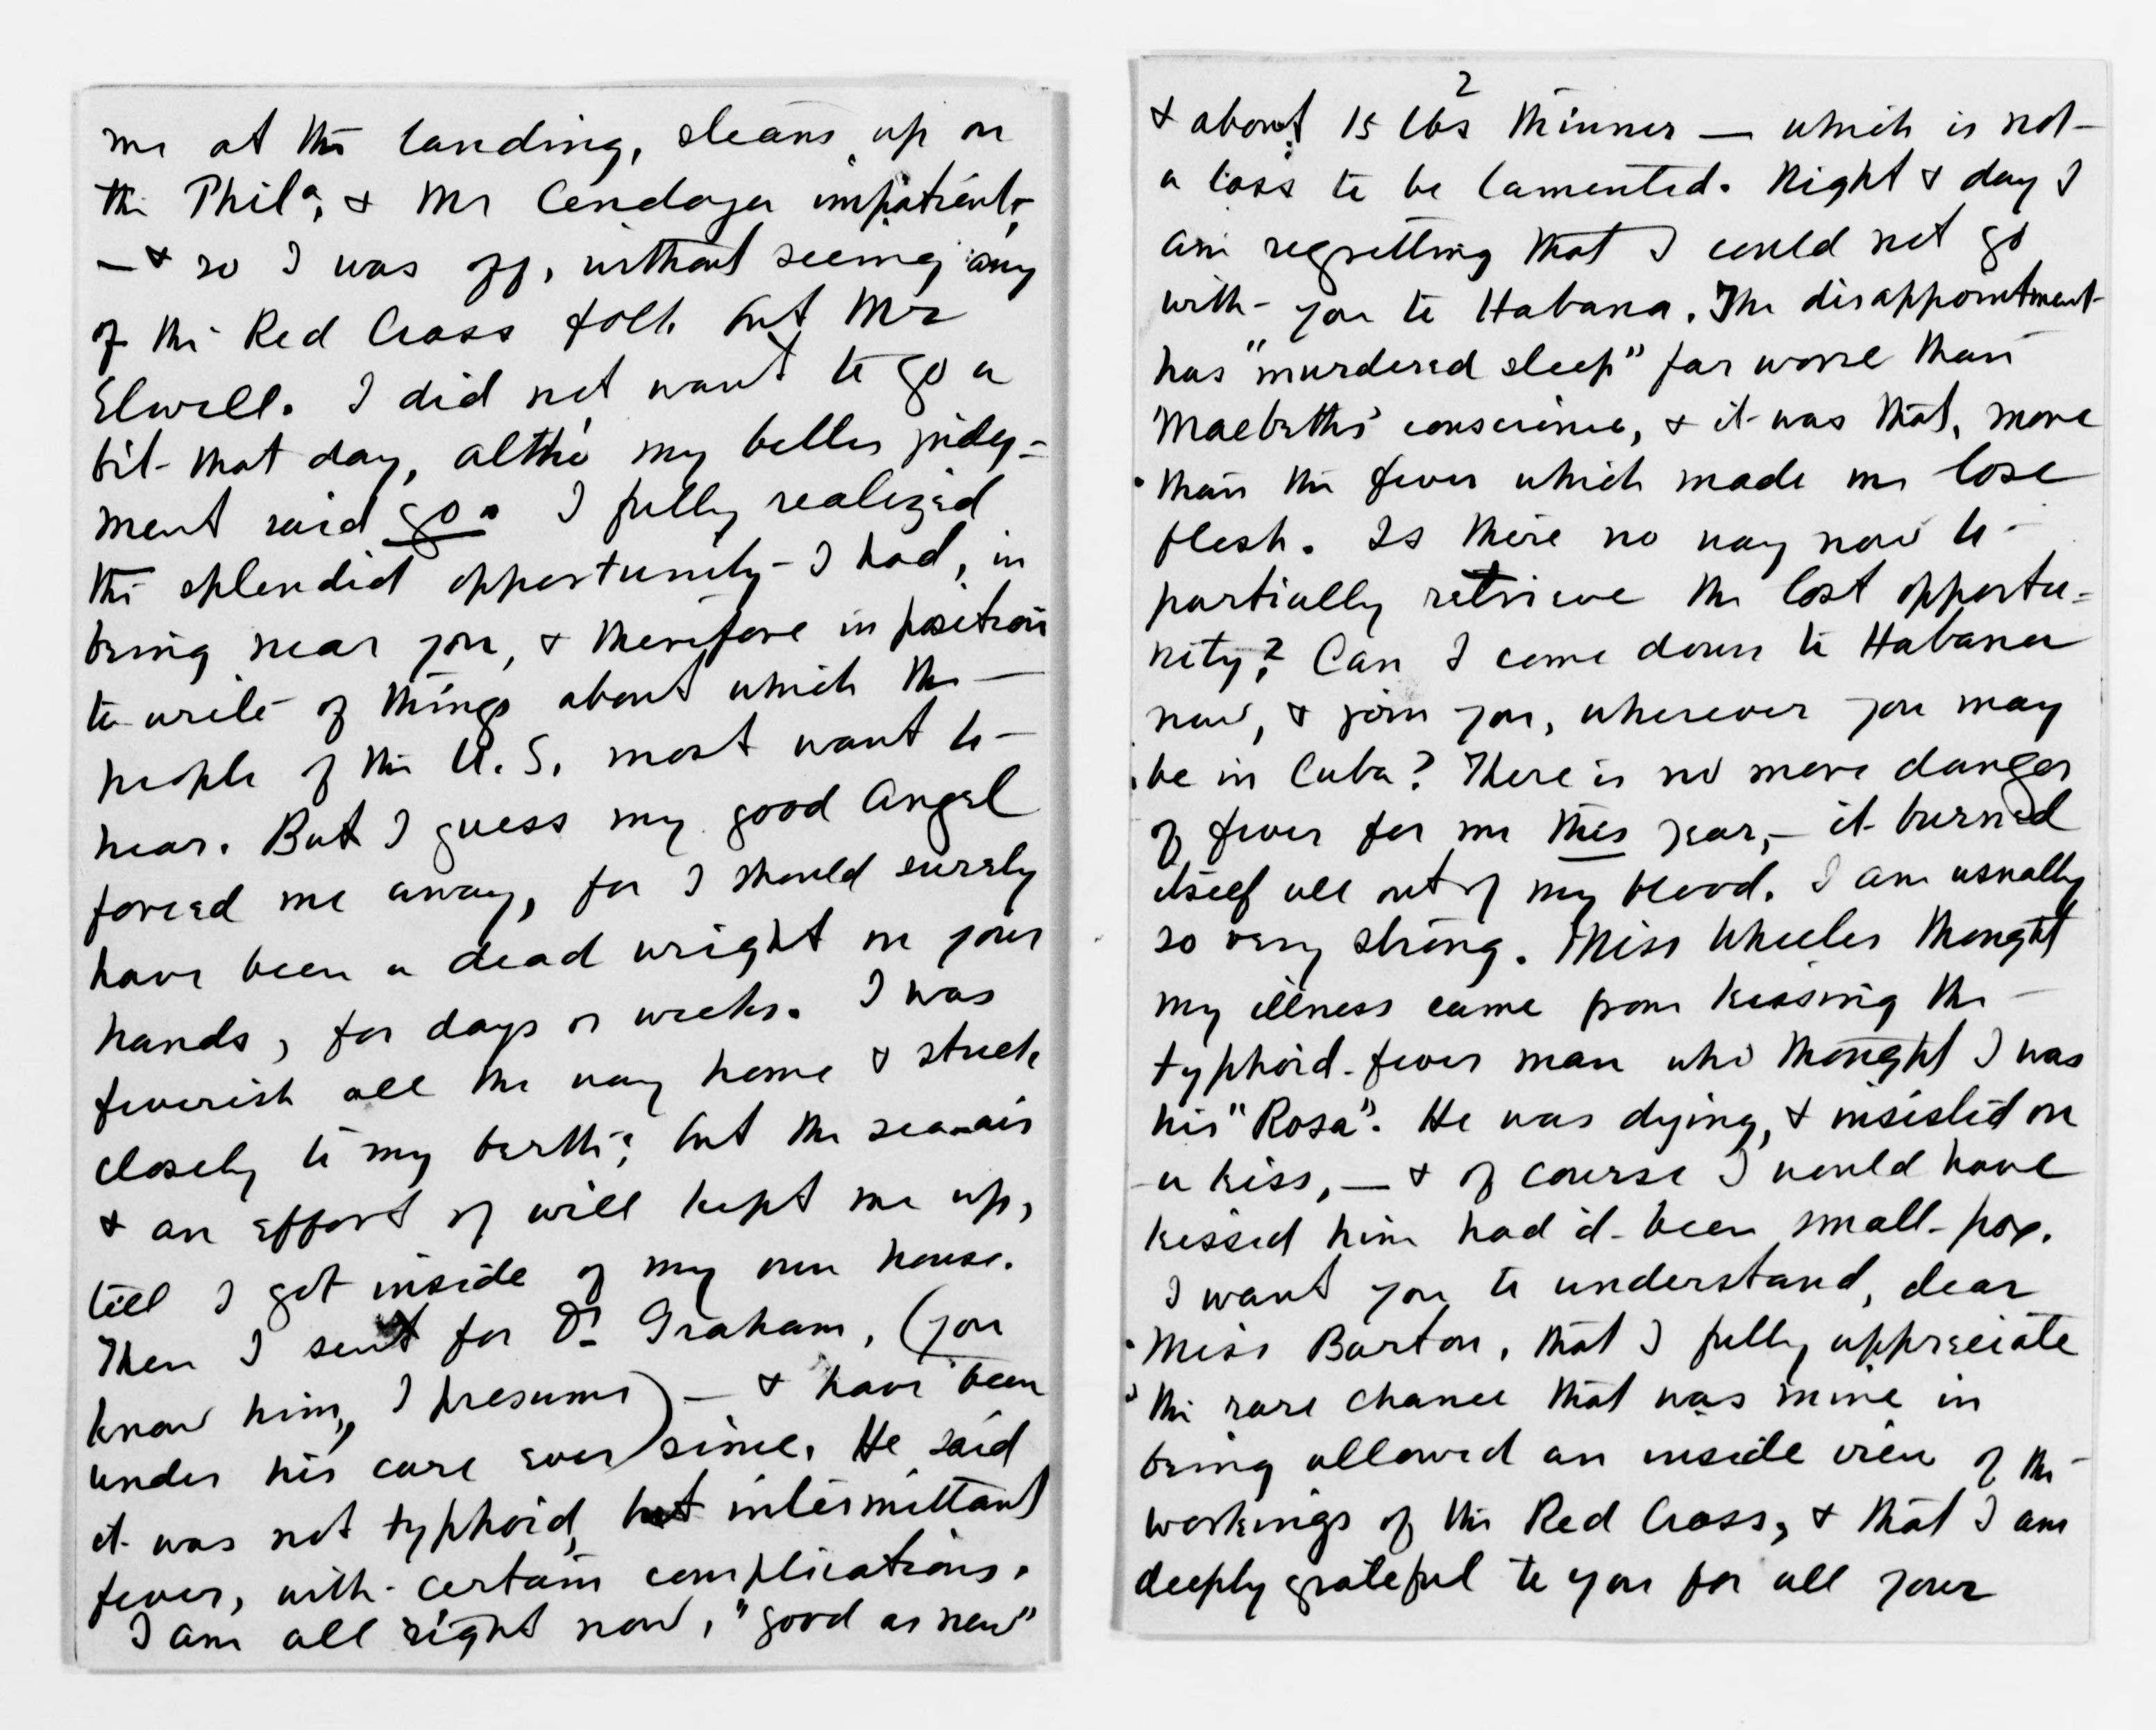 me at the landing, steam up on
the Phila, & Mr Cendoya impatient,
— & so I was off, without seeing any
of the Red Cross folk but Mr
Elwell. I did not want to go a
bit that day, altho' my better judg-
ment said go. I fully realized
the splendid opportunity I had, in
being near you, & therefore in position
to write of things about which the
people of the U.S. most want to
hear. But I guess my good Angel
forced me away, for I should surely
have been a dead weight on your
hands, for days or weeks. I was
feverish all the way home & stuck
closely to my berth; but the sea-air
& an effort of will kept me up,
till I got inside of my own house.
Then I sent for Dr Graham, (you
know him, I presume) — & have been
under his care ever since. He said
it was not typhoid, but intermittant
fever, with certain complications.
I am all right now, "good as new"
2
& about 15 lbs thinner — which is not
a loss to be lamented. Night & day I
am regretting that I could not go
with you to Habana. The disappointment
has "murdered sleep" far worse than
Macbeth's conscience, & it was that, more
than the fever which made me lose
flesh. Is there no way now to
partially retrieve the lost opportu-
nity? Can I come down to Habana
now, & join you, wherever you may
be in Cuba? There is no more danger
of fever for me this year, — it burned
itself all out of my blood. I am usually
so very strong. Miss Wheeler thought
my illness came from kissing the
typhoid-fever man who thought I was
his "Rosa". He was dying, & insisted on
a kiss, — & of course I would have
kissed him had it been small-pox.
I want you to understand, dear
Miss Barton, that I fully appreciate
the rare chance that was mine in
being allowed an inside view of the
workings of the Red Cross, & that I am
deeply grateful to you for all your